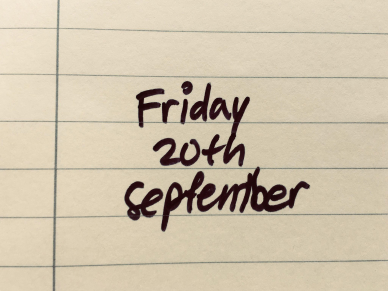 Friday
20th
september